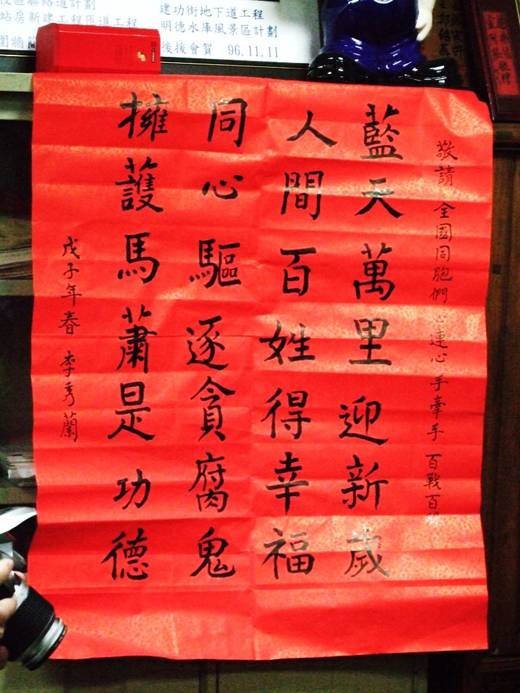 敬請 全國同胞們 心連心 手牽手 百戰百
藍天萬里迎新歲
人間百姓得幸福
同心驅逐貪腐鬼
擁護馬蕭是功德
戊子年春 李秀蘭
建功街地下道工程
站房新建工程 道工程
明德水庫風景區計劃
後援會賀 96.11.11